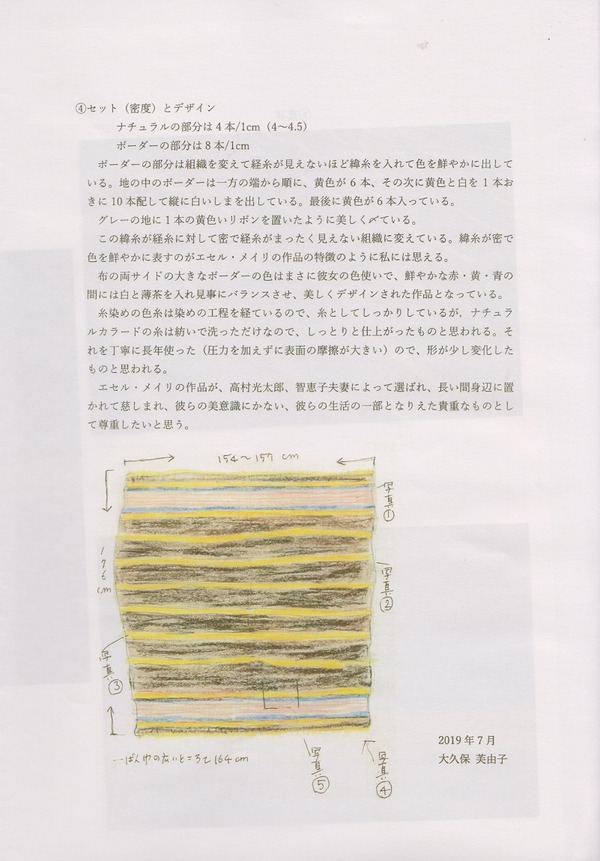 ④セット（密度）とデザイン
ナチュラルの部分は４本/1cm（4～4.5）
ボーダーの部分は８本/1cm
ボーダーの部分は組織を変えて経糸が見えないほど緯糸を入れて色を鮮やかに出して
いる。地の中のボーダーは一方の端から順に、黄色が６本、その次に黄色と白を１本お
きに10本配して縦に白いしまを出している。最後に黄色が６本入っている。
グレーの地に１本の黄色いリボンを置いたように美しく〆ている。
この緯糸が経糸に対して密で経糸がまったく見えない組織に変えている。緯糸が密で
色を鮮やかに表すのがエセル・メイリの作品の特徴のように私には思える。
布の両サイドの大きなボーダーの色はまさに彼女の色使いで、鮮やかな赤・黄・青の
間には白と薄茶を入れ見事にバランスさせ、美しくデザインされた作品となっている。
糸染めの色糸は染めの工程を経ているので、糸としてしっかりしているが、ナチュラ
ルカラードの糸は紡いで洗っただけなので、しっとりと仕上がったものと思われる。そ
れを丁寧に長年使った（圧力を加えずに表面の摩擦が大きい）ので、形が少し変化した
ものと思われる。
エセル・メイリの作品が、高村光太郎、智恵子夫妻によって選ばれ、長い間身辺に置
かれて慈しまれ、彼らの美意識にかない、彼らの生活の一部となりえた貴重なものとし
て尊重したいと思う。
154～157 cm
写真①
176cm
写真②
写真③
一ばん巾の広いところで164cm
写真⑤
写真④
2019年7月
大久保 美由子